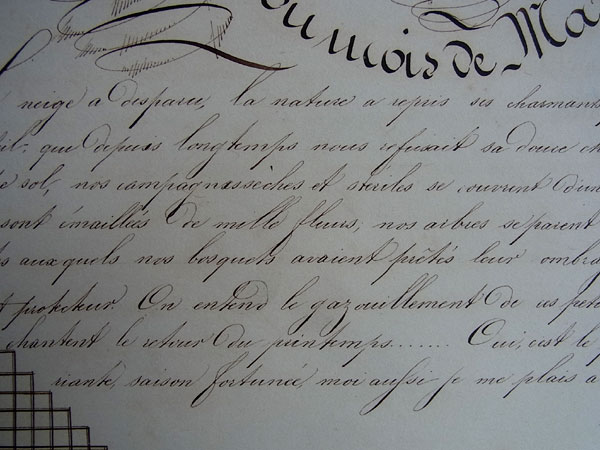 Du mois de Ma
neige a disparue, la nature a repris ses charmant
il, que depuis longtemps nous refusait sa douce ch
sol, nos campagnes sèches et stériles se couvrent d'une
sont émaillées de mille fleurs, nos arbres se parent
s auxquels nos bosquets avaient prêtés leur ombra
t protecteur. On entend le gazouillement de ces peti
chantent le retour du printemps....... Oui, c'est le p
riante, saison fortunée, moi aussi je me plais a